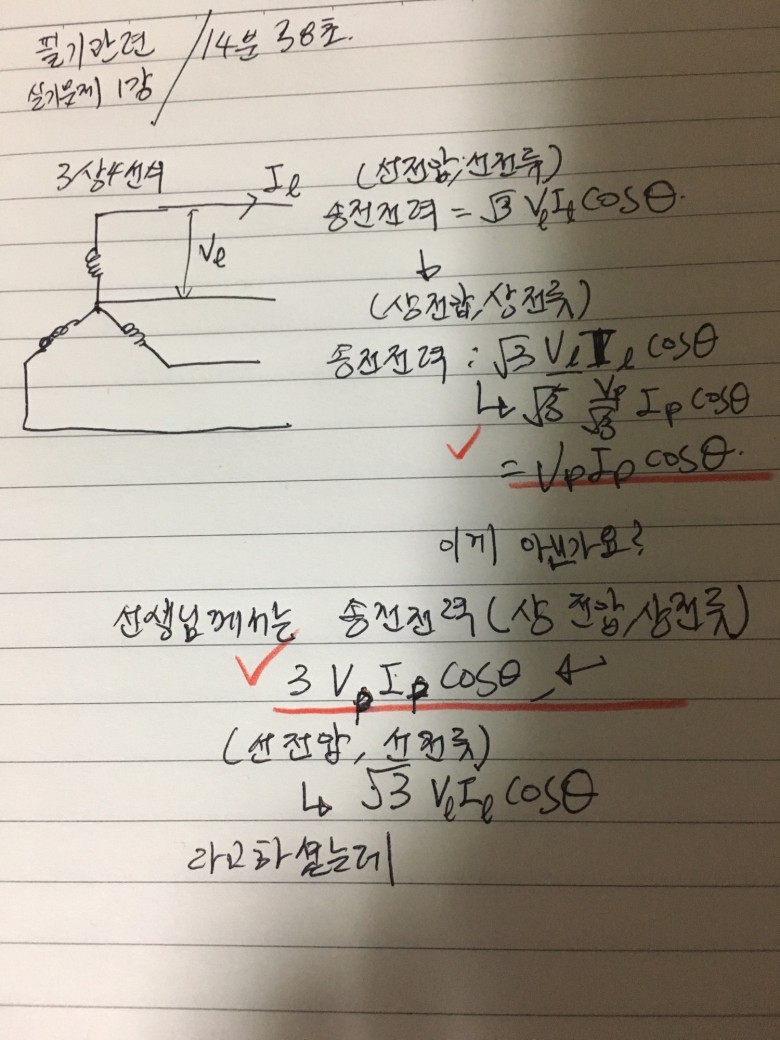 필기관련 / 14분 38초.
실기문제 1강
3상4선식
I_l
V_l
(선전압, 선전류)
송전전력 = √3 V_l I_l cosθ.
↓
(상전압, 상전류)
송전전력 : √3 V_l I_l cosθ
↳ √3 V_p/√3 I_p cosθ
= V_p I_p cosθ.
이게 아닌가요?
선생님께서는 송전전력 (상전압, 상전류)
3 V_p I_p cosθ ←
(선전압, 선전류)
↳ √3 V_l I_l cosθ
라고하셨는데